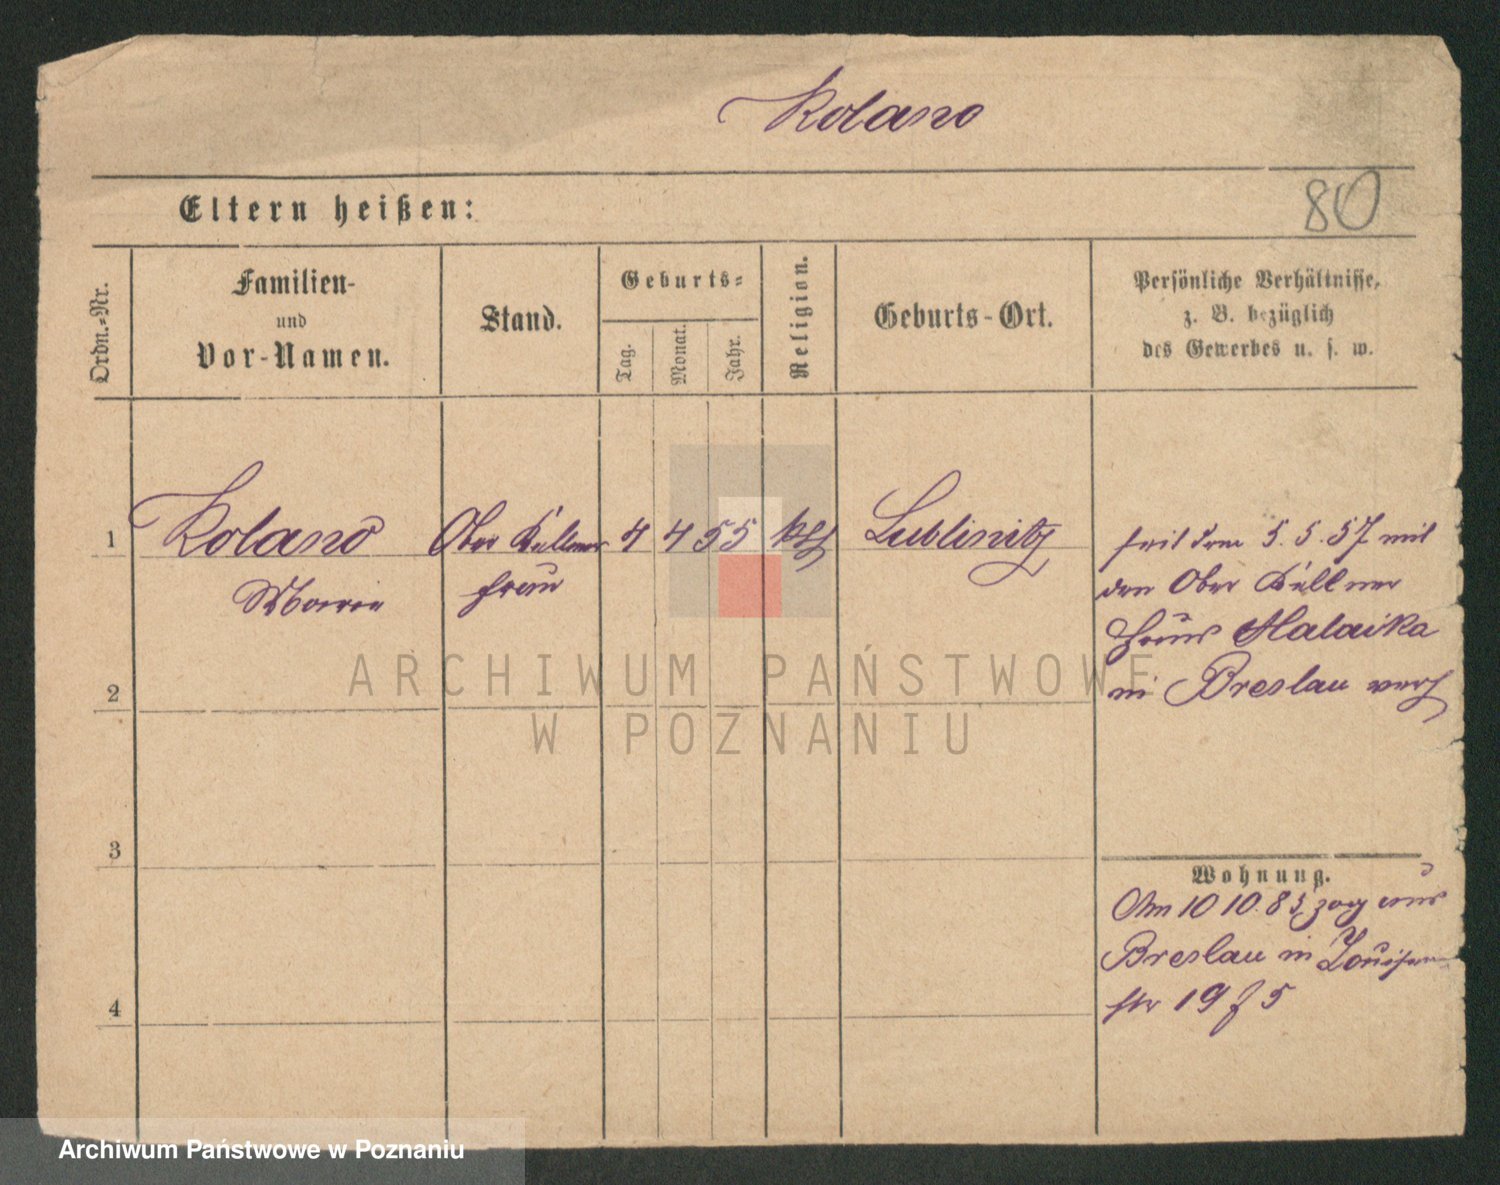 Kolano
Eltern heißen:
80
Ordn.-Nr.
Familien-
und
Vor-Namen.
Stand.
Geburts-
Tag.
Monat.
Jahr.
Religion.
Geburts-Ort.
Persönliche Verhältnisse,
z. B. bezüglich
des Gewerbes u. s. w.
1
Kolano
Ober Kellner
4 4 55
kth
Lublinitz
Marie
frau
seit dem 5. 5. 57 mit
den Ober Kellner
Franz Malaika
in Breslau verh
2
3
4
Wohnung.
Am 10 10. 85 zog aus
Breslau in Louisen
str 19 f 5
ARCHIWUM PAŃSTWOWE
W POZNANIU
Archiwum Państwowe w Poznaniu